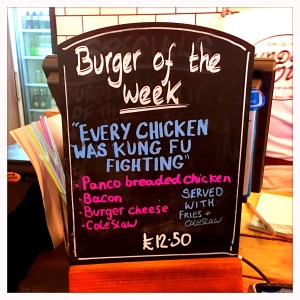 Burger of the
week
"EVERY CHICKEN
WAS KUNG FU
FIGHTING"
- Panco breaded chicken
- Bacon
- Burger cheese
- Coleslaw
SERVED
WITH
FRIES +
COLESLAW
£12.50